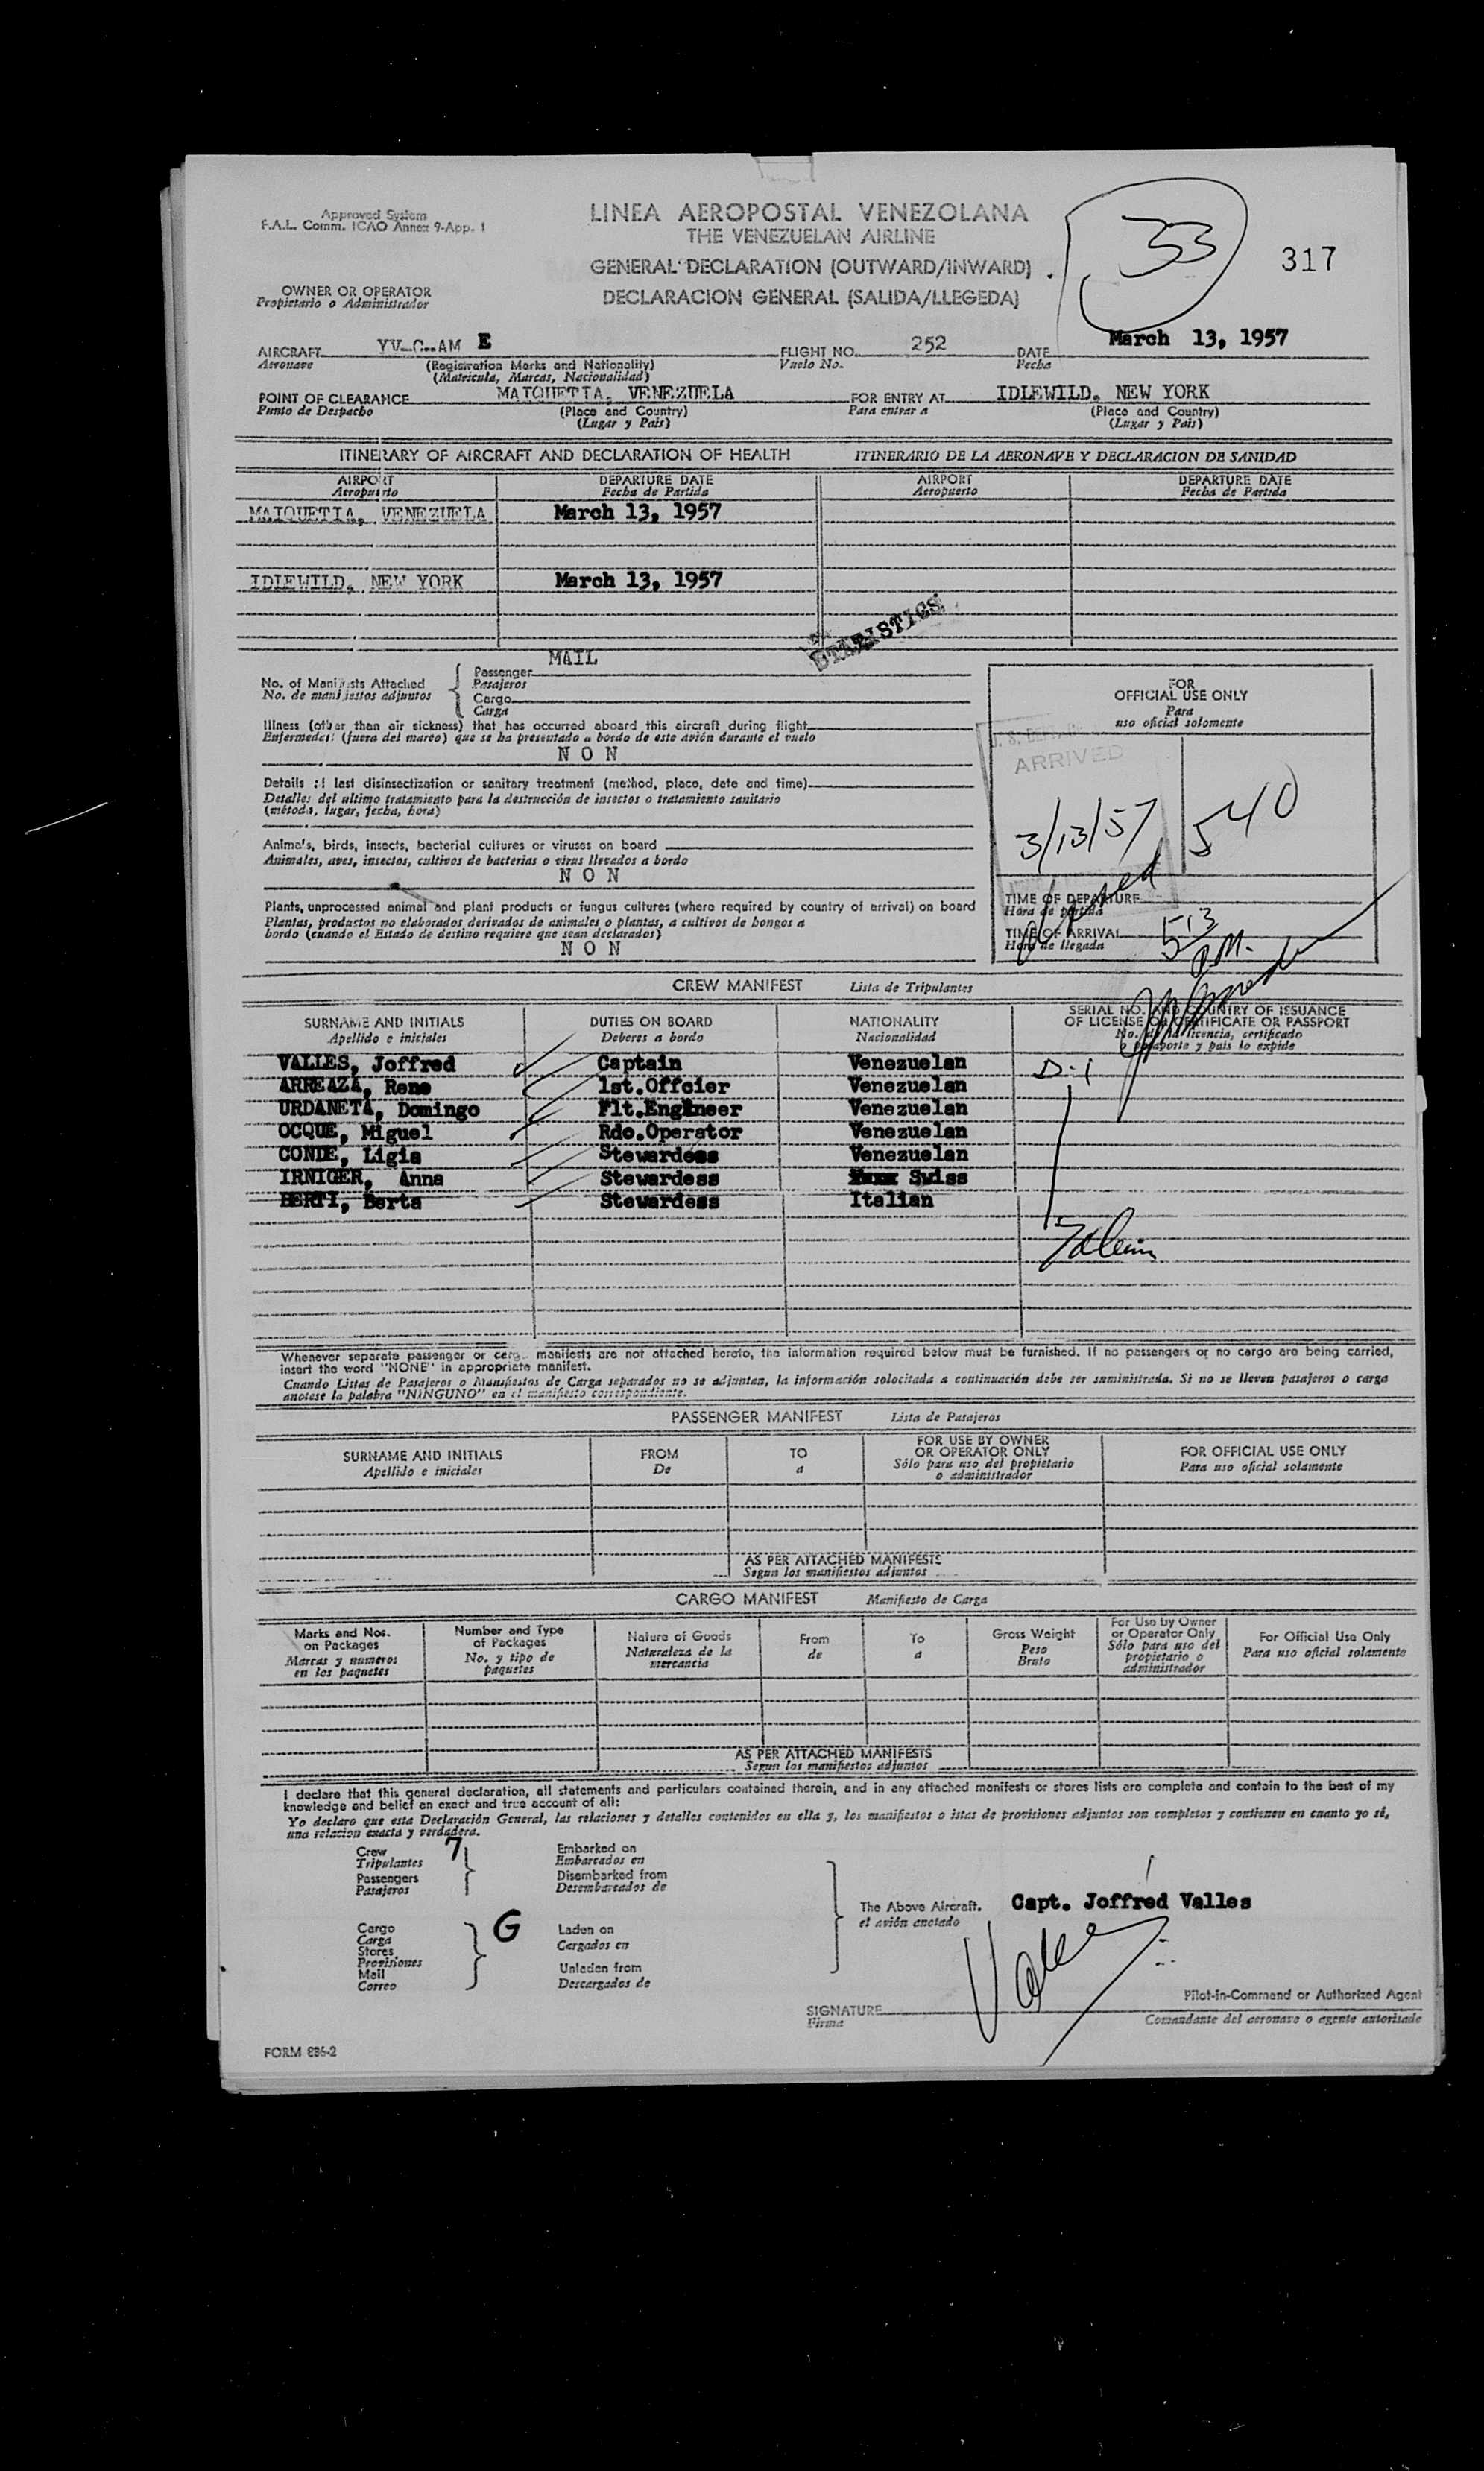 Approved System
F.A.L. Comm. ICAO Annex 9-App. 1
LINEA AEROPOSTAL VENEZOLANA
THE VENEZUELAN AIRLINE
GENERAL DECLARATION (OUTWARD/INWARD)
DECLARACION GENERAL (SALIDA/LLEGEDA)
33
317
OWNER OR OPERATOR
Propietario o Administrador
AIRCRAFT YV-C-AM E FLIGHT NO. 252 DATE March 13, 1957
Aeronave (Registration Marks and Nationality) Vuelo No. Fecha
(Matricula, Marcas, Nacionalidad)
POINT OF CLEARANCE MAIQUETIA, VENEZUELA FOR ENTRY AT IDLEWILD, NEW YORK
Punto de Despacho (Place and Country) Para entrar a (Place and Country)
(Lugar y Pais) (Lugar y Pais)
ITINERARY OF AIRCRAFT AND DECLARATION OF HEALTH ITINERARIO DE LA AERONAVE Y DECLARACION DE SANIDAD
AIRPORT DEPARTURE DATE AIRPORT DEPARTURE DATE
Aeropuerto Fecha de Partida Aeropuerto Fecha de Partida
MAIQUETIA, VENEZUELA March 13, 1957
IDLEWILD, NEW YORK March 13, 1957
STATISTICS
MAIL
No. of Manifests Attached Passenger
No. de manifiestos adjuntos Pasajeros
Cargo
Carga
Illness (other than air sickness) that has occurred aboard this aircraft during flight
Enfermedad: (fuera del mareo) que se ha presentado a bordo de este avión durante el vuelo
N O N
Details of last disinsectization or sanitary treatment (method, place, date and time)
Detalles del ultimo tratamiento para la destrucción de insectos o tratamiento sanitario
(método, lugar, fecha, hora)
Animals, birds, insects, bacterial cultures or viruses on board
Animales, aves, insectos, cultivos de bacterias o virus llevados a bordo
N O N
Plants, unprocessed animal and plant products or fungus cultures (where required by country of arrival) on board
Plantas, productos no elaborados derivados de animales o plantas, a cultivos de hongos a
bordo (cuando el Estado de destino requiere que sean declarados)
N O N
FOR
OFFICIAL USE ONLY
Para
uso oficial solamente
U. S. DEPT. OF
ARRIVED
3/13/57 540
TIME OF DEPARTURE
Hora de partida
TIME OF ARRIVAL 513
Hora de llegada P.M.
CREW MANIFEST Lista de Tripulantes
SURNAME AND INITIALS DUTIES ON BOARD NATIONALITY SERIAL NO. AND COUNTRY OF ISSUANCE
OF LICENSE OR CERTIFICATE OR PASSPORT
Apellido e iniciales Deberes a bordo Nacionalidad No. de la licencia, certificado
o pasaporte y pais lo expide
VALLES, Joffred Captain Venezuelan D-1
ARREAZA, Rene 1st.Offcier Venezuelan
URDANETA, Domingo Flt.Engineer Venezuelan
OCQUE, Miguel Rdo.Operator Venezuelan
CONDE, Ligia Stewardess Venezuelan
IRNIGER, Anna Stewardess Swiss
BERTI, Berta Stewardess Italian
Whenever separate passenger or cargo manifests are not attached hereto, the information required below must be furnished. If no passengers or no cargo are being carried,
insert the word "NONE" in appropriate manifest.
Cuando Listas de Pasajeros o Manifiestos de Carga separados no se adjuntan, la información solocitada a continuación debe ser suministrada. Si no se lleven pasajeros o carga
anotese la palabra "NINGUNO" en el manifiesto correspondiente.
PASSENGER MANIFEST Lista de Pasajeros
SURNAME AND INITIALS FROM TO FOR USE BY OWNER
OR OPERATOR ONLY FOR OFFICIAL USE ONLY
Apellido e iniciales De a Sólo para uso del propietario
o administrador Para uso oficial solamente
AS PER ATTACHED MANIFESTS
Segun los manifiestos adjuntos
CARGO MANIFEST Manifiesto de Carga
Marks and Nos.
on Packages
Marcas y numeros
en los paquetes
Number and Type
of Packages
No. y tipo de
paquetes
Nature of Goods
Naturaleza de la
mercancia
From
de
To
a
Gross Weight
Peso
Bruto
For Use by Owner
or Operator Only
Sólo para uso del
propietario o
administrador
For Official Use Only
Para uso oficial solamente
AS PER ATTACHED MANIFESTS
Segun los manifiestos adjuntos
I declare that this general declaration, all statements and particulars contained therein, and in any attached manifests or stores lists are complete and contain to the best of my
knowledge and belief an exact and true account of all:
Yo declaro que esta Declaración General, las relaciones y detalles contenidos en ella y, los manifiestos o istas de provisiones adjuntos son completos y contienen en cuanto yo sé,
una relacion exacta y verdadera.
Crew 7 Embarked on
Tripulantes Embarcados en
Passengers Disembarked from
Pasajeros Desembarcados de
The Above Aircraft. Capt. Joffred Valles
el avión anotado
Cargo G Laden on
Carga Cargados en
Stores
Provisiones Unladen from
Mail Descargados de
Correo
Valles
Pilot-in-Command or Authorized Agent
SIGNATURE
Firma Comandante del aeronave o agente autorizado
FORM 886-2